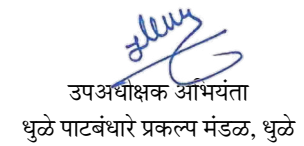 उपअधीक्षक अभियंता
धुळे पाटबंधारे प्रकल्प मंडळ, धुळे